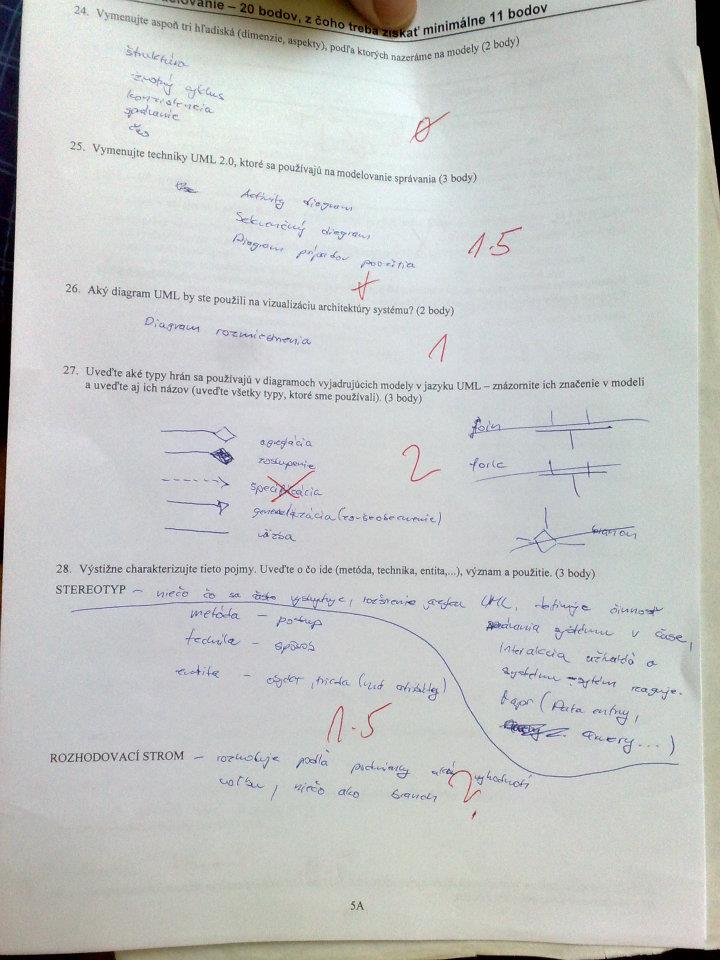 elovanie – 20 bodov, z čoho treba získať minimálne 11 bodov
24. Vymenujte aspoň tri hľadiská (dimenzie, aspekty), podľa ktorých nazeráme na modely (2 body)
štruktúra
životný cyklus
konzistencia
správanie
čas
0
25. Vymenujte techniky UML 2.0, ktoré sa používajú na modelovanie správania (3 body)
Activity diagram
Sekvenčný diagram
Diagram prípadov použitia
1.5
26. Aký diagram UML by ste použili na vizualizáciu architektúry systému? (2 body)
Diagram rozmiestnenia
1
27. Uveďte aké typy hrán sa používajú v diagramoch vyjadrujúcich modely v jazyku UML – znázornite ich značenie v modeli
a uveďte aj ich názov (uveďte všetky typy, ktoré sme používali). (3 body)
agregácia
zoskupenie
špecifikácia
generalizácia (zovšeobecnenie)
väzba
2
join
fork
branch
28. Výstižne charakterizujte tieto pojmy. Uveďte o čo ide (metóda, technika, entita,...), význam a použitie. (3 body)
STEREOTYP – niečo čo sa vyskytuje, rozšírenie jazyka UML, definuje činnosť
systému v čase,
interakcia a
systému – systém reaguje.
(Data entry,
query...)
metóda – postup
technika – spôsob
entita – objekt, trieda (má atribúty)
1.5
ROZHODOVACÍ STROM – rozhoduje podľa podmienky vyhodnotí
voľbu, niečo ako branch
?
5A